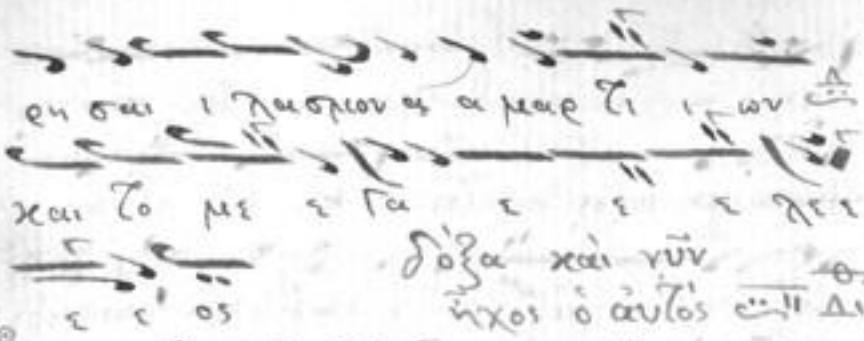 ρη σαι ι λασμον α α μαρ τι ι ων
και το με ε γα ε ε ε λε ε
ε ε ος δόξα καὶ νῦν
ἦχος ὁ αὐτὸς